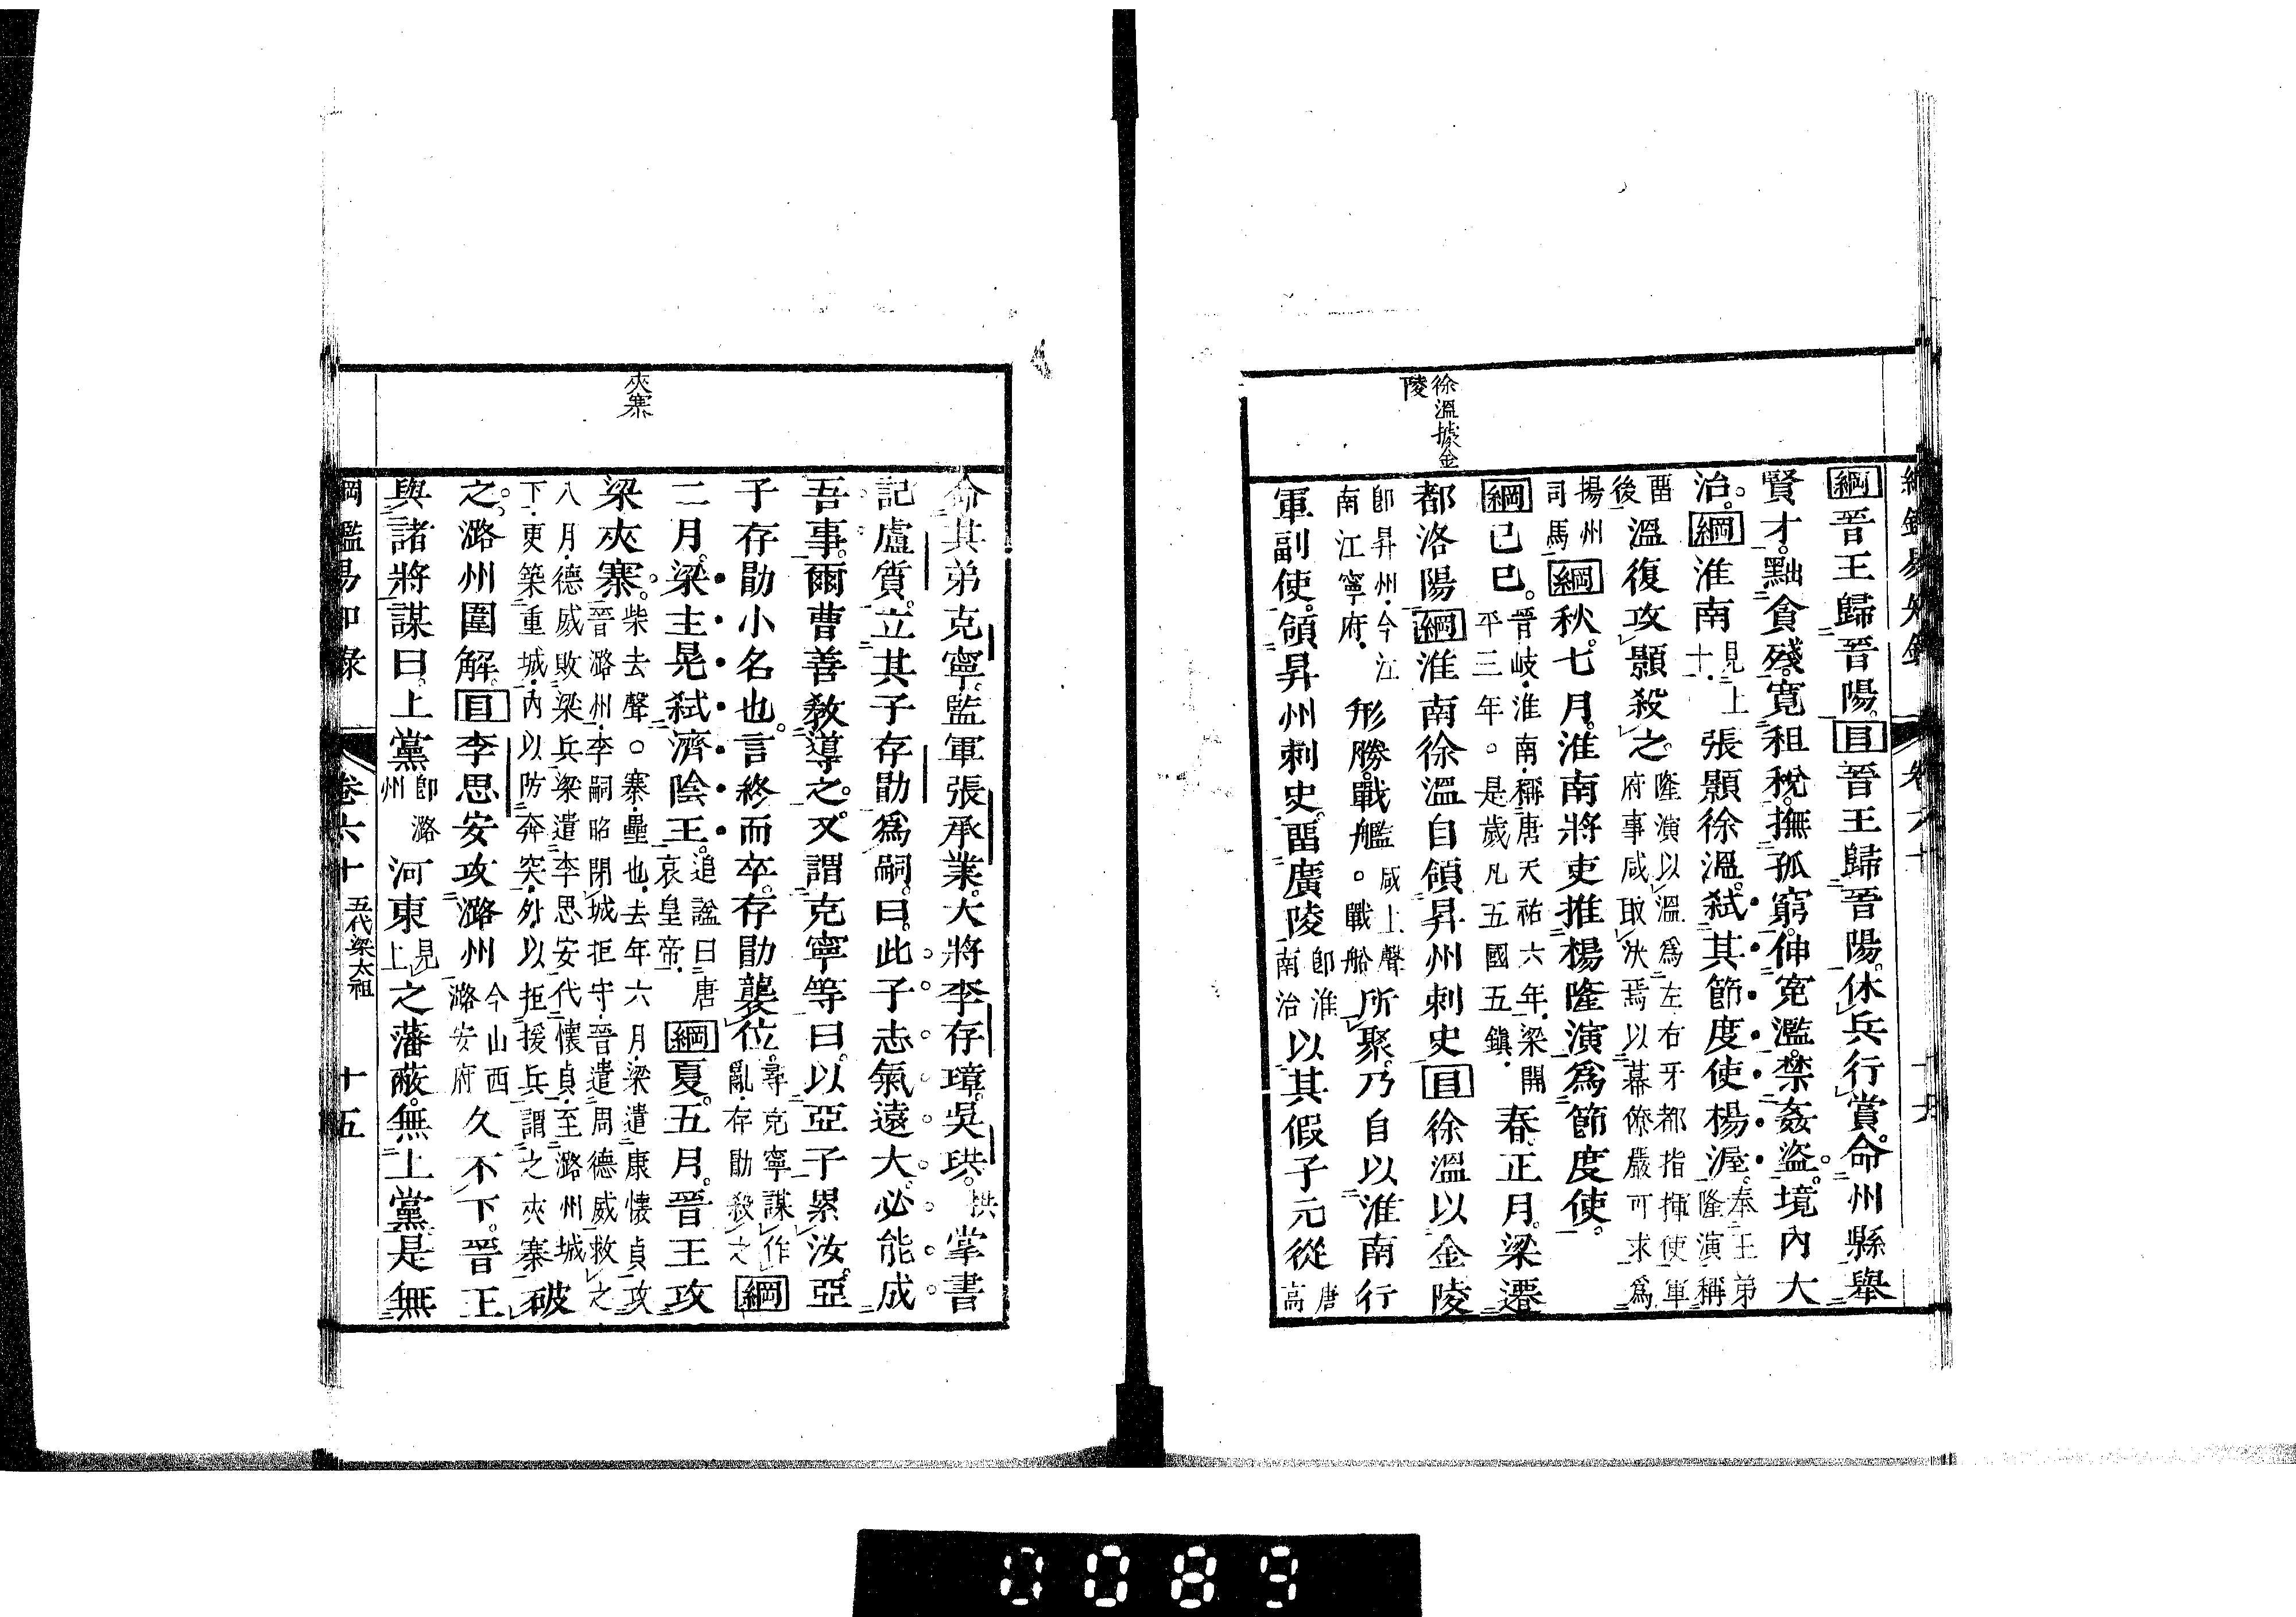 徐溫據金
陵
綱晉王歸晉陽。目晉王歸晉陽。休兵行賞。命州縣舉
賢才。黜貪殘。寬租稅。撫孤窮。伸冤濫。禁姦盜。境內大
治。綱淮南見上十張顥徐溫。弒其節度使楊渥。奉王弟隆演稱
畱後溫復攻顥殺之。隆演以溫爲左右牙都指揮使軍府事咸取決焉以幕僚嚴可求爲
揚州司馬綱秋。七月。淮南將吏推楊隆演爲節度使。
綱己巳。晉岐淮南稱唐天祐六年梁開平三年○是歲凡五國五鎭春。正月。梁遷
都洛陽綱淮南徐溫自領昇州刺史目徐溫以金陵
卽昇州今江南江寧府形勝。戰艦咸上聲○戰船所聚。乃自以淮南行
軍副使。領昇州刺史。畱廣陵卽淮南治以其假子元從唐高
夾寨
命其弟克寧。監軍張承業。大將李存璋。吳珙。拱掌書
記盧質。立其子存勖爲嗣。曰。此子志氣遠大。必能成
吾事。爾曹善敎導之。又謂克寧等曰。以亞子累汝。亞
子存勖小名也。言終而卒。存勖襲位。尋克寧謀作亂存勖殺之綱
二月。梁主晃弒濟陰王。追諡曰唐哀皇帝綱夏。五月。晉王攻
梁夾寨。柴去聲○寨壘也去年六月梁遣康懷貞攻晉潞州李嗣昭閉城拒守晉遣周德威救之
八月德威敗梁兵梁遣李思安代懷貞至潞州城下更築重城內以防奔突外以拒援兵謂之夾寨破
之。潞州圍解。目李思安攻潞州今山西潞安府久不下。晉王
與諸將謀曰。上黨卽潞州河東見上之藩蔽。無上黨。是無
綱鑑易知錄 卷六十 五代梁太祖 十五